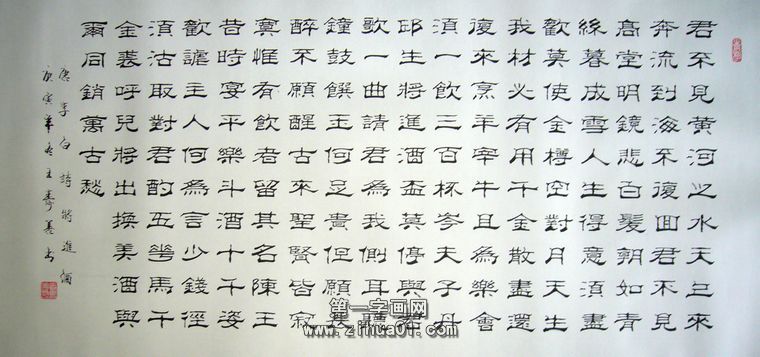 君不見黃河之水天上來
奔流到海不復回君不見
高堂明鏡悲白髮朝如青
絲暮成雪人生得意須盡
歡莫使金樽空對月天生
我材必有用千金散盡還
復來烹羊宰牛且為樂會
須一飲三百杯岑夫子丹
邱生將進酒盃莫停與君
歌一曲請君為我側耳聽
鐘鼓饌玉何足貴但願長
醉不願醒古來聖賢皆寂
寞惟有飲者留其名陳王
昔時宴平樂斗酒十千姿
歡謔主人何為言少錢徑
須沽取對君酌五華馬千
金裘呼兒將出換美酒與
爾同銷萬古愁
唐李白詩將進酒
庚寅年冬王壽書
第一字画网
www.zihua01.com